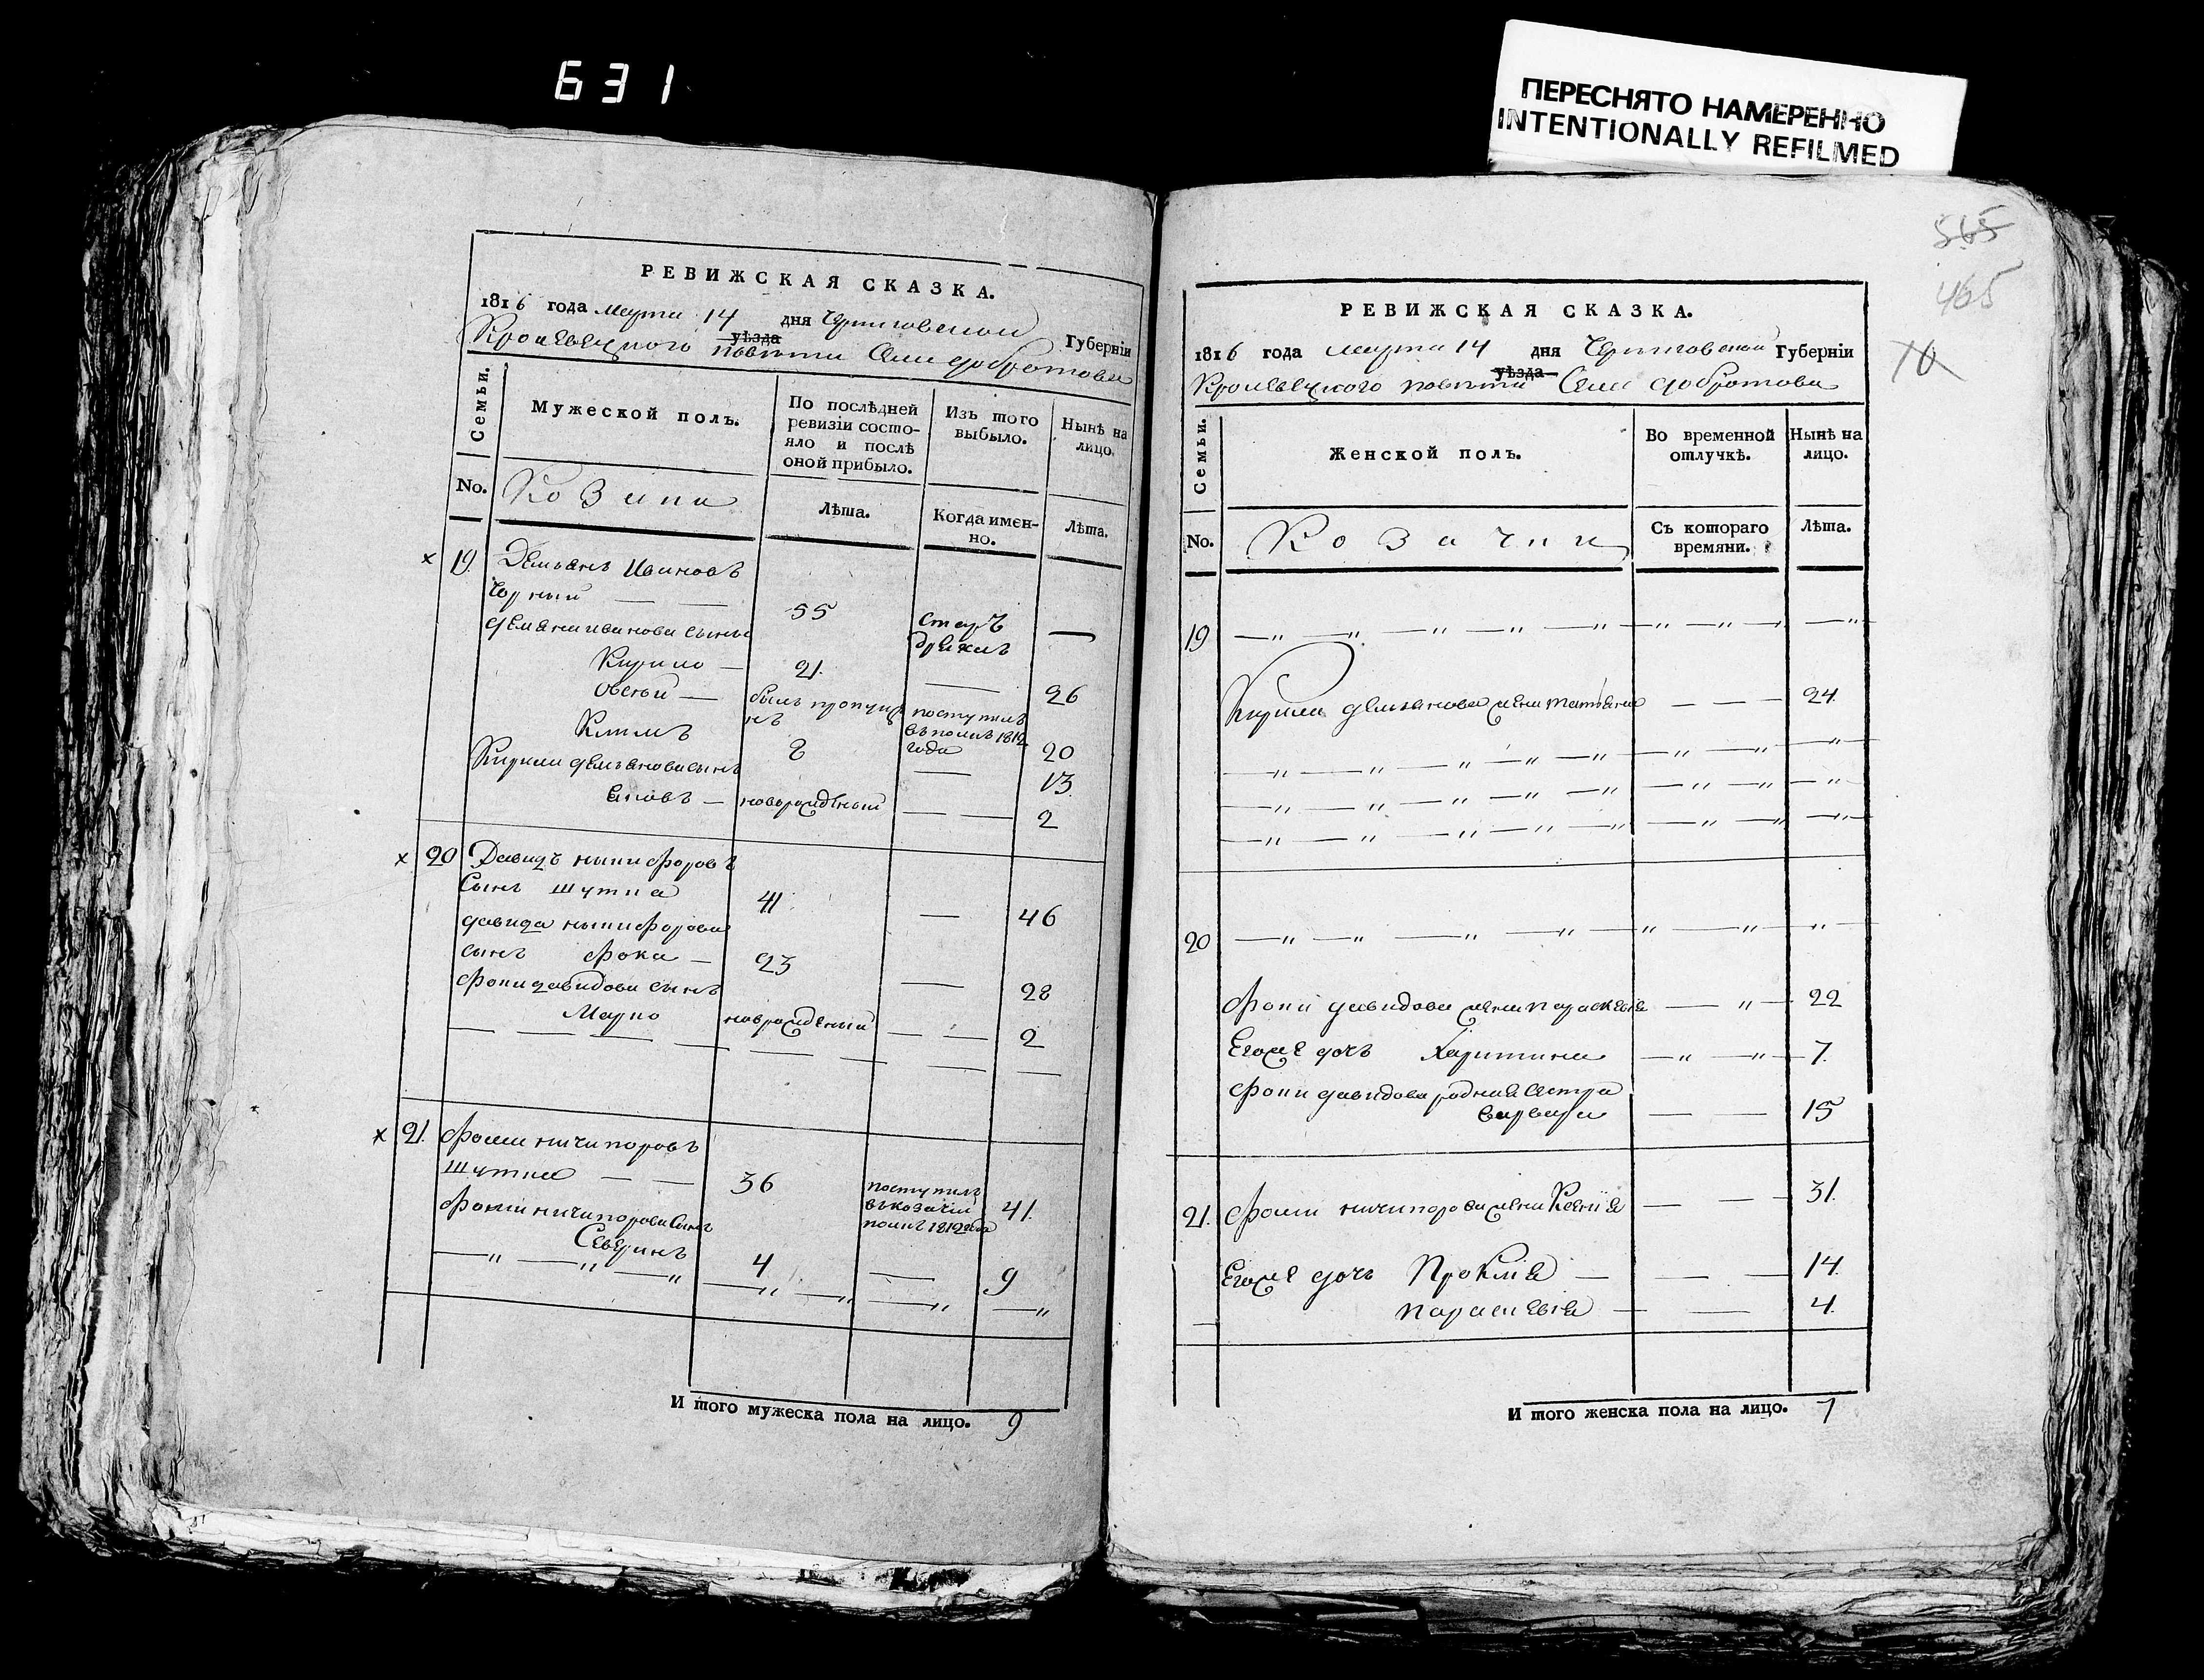 631
ПЕРЕСНЯТО НАМЕРЕННО
INTENTIONALLY REFILMED
РЕВИЖСКАЯ СКАЗКА.
1816 года марта 14 дня Черниговской Губерніи
Кролевецкого уѣзда повѣта Села добротова
Семьи.
Мужеской полъ.
По послѣдней
ревизіи состо-
яло и послѣ
оной прибыло.
Изъ того
выбыло.
Нынѣ на
лицо.
No.
Козаки
Лѣта.
Когда имен-
но.
Лѣта.
х 19. Демьянъ Ивановъ
Чорный — — 55 —
демяна иванова сынъ
Кирило — 21. — 26
Овсѣй — былъ пропущ
нъ поступилъ
въ полкъ 1812
года 20
Климъ 8 — 13.
Кирила демьянова сынъ
Яковъ — новорожденый — — 2
х 20 Давидъ никифоровъ
Сынъ шутка 41 — 46
давида никифорова
сынъ фока — 23 — 28
фоки давидова сынъ
Марко новорожденый — — 2
х 21. фома ничипоровъ
шутка — — 36 поступилъ
въ козачій
полкъ 1812 года 41.
фомы ничипорова Сынъ
Северинъ 4 — 9
И того мужеска пола на лицо. 9
565
465
70
РЕВИЖСКАЯ СКАЗКА.
1816 года марта 14 дня Черниговской Губерніи
Кролевецкого уѣзда повѣта Села добротова
Семьи.
Женской полъ.
Во временной
отлучкѣ.
Нынѣ на
лицо.
No.
Козачки
Съ котораго
времяни.
Лѣта.
19 —„ —„ —„ —„ —„ —„ —„ —„
Кирила демьянова жена татьяна — — — 24.
20 —„ —„ —„ —„ —„ —„ —„
фоки давидова жена параскевія — „ — 22
Егоже дочъ Харитина —„ —„ — 7.
фоки давидова родная сестра
варвара — — 15
21. фомы ничипорова жена Ксенія — — 31.
Егоже дочъ Проклія — — — 14.
параскевія — — 4.
И того женска пола на лицо. 7